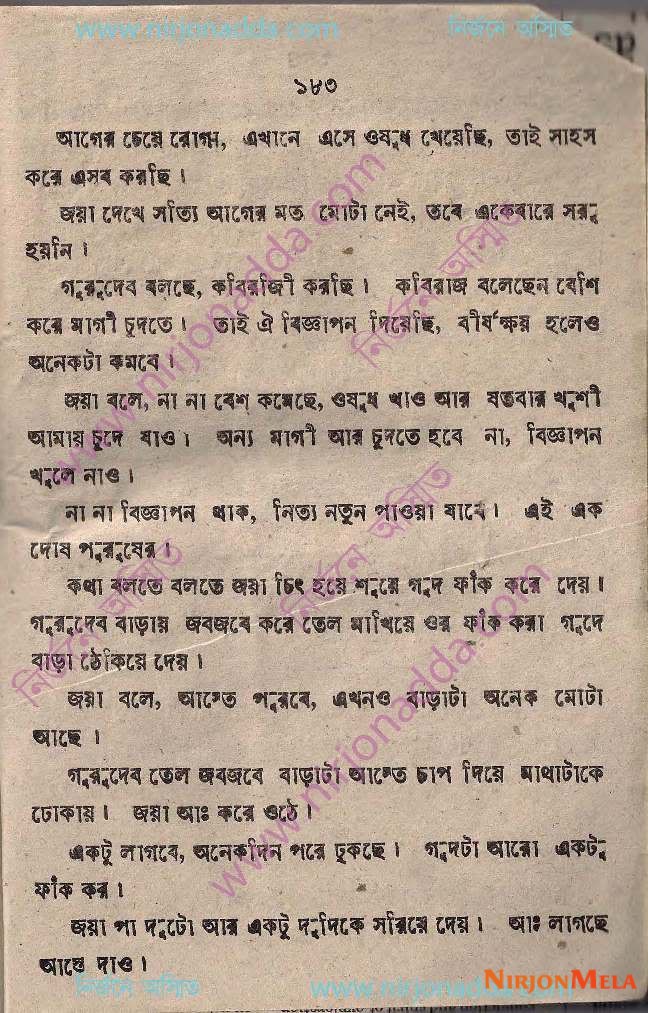 www.nirjonadda.com নির্জনে অস্মিত
১৮৩
আগের চেয়ে রোগা, এখানে এসে ওষুধ খেয়েছি, তাই সাহস
করে এসব করছি।
জয়া দেখে সত্যি আগের মত মোটা নেই, তবে একেবারে সরু
হয়নি।
গুরুদেব বলছে, কবিরাজী করছি। কবিরাজ বলেছেন বেশি
করে মাগী চুদতে। তাই ঐ বিজ্ঞাপন দিয়েছি, বীর্যক্ষয় হলেও
অনেকটা কমবে।
জয়া বলে, না না বেশ কমেছে, ওষুধ খাও আর যতবার খুশী
আমায় চুদে যাও। অন্য মাগী আর চুদতে হবে না, বিজ্ঞাপন
খুলে নাও।
না না বিজ্ঞাপন থাক, নিত্য নতুন পাওয়া যাবে। এই এক
দোষ পুরুষের।
কথা বলতে বলতে জয়া চিৎ হয়ে শুয়ে গুদ ফাঁক করে দেয়।
গুরুদেব বাড়ায় জবজবে করে তেল মাখিয়ে ওর ফাঁক করা গুদে
বাড়া ঠেকিয়ে দেয়।
জয়া বলে, আস্তে পুরবে, এখনও বাড়াটা অনেক মোটা
আছে।
গুরুদেব তেল জবজবে বাড়াটা আস্তে চাপ দিয়ে মাথাটাকে
ঢোকায়। জয়া আঃ করে ওঠে।
একটু লাগবে, অনেকদিন পরে ঢুকছে। গুদটা আরো একটু
ফাঁক কর।
জয়া পা দুটো আর একটু দুদিকে সরিয়ে দেয়। আঃ লাগছে
আস্তে দাও।
নির্জনে অস্মিত www.nirjonadda.com
NIRJONMELA